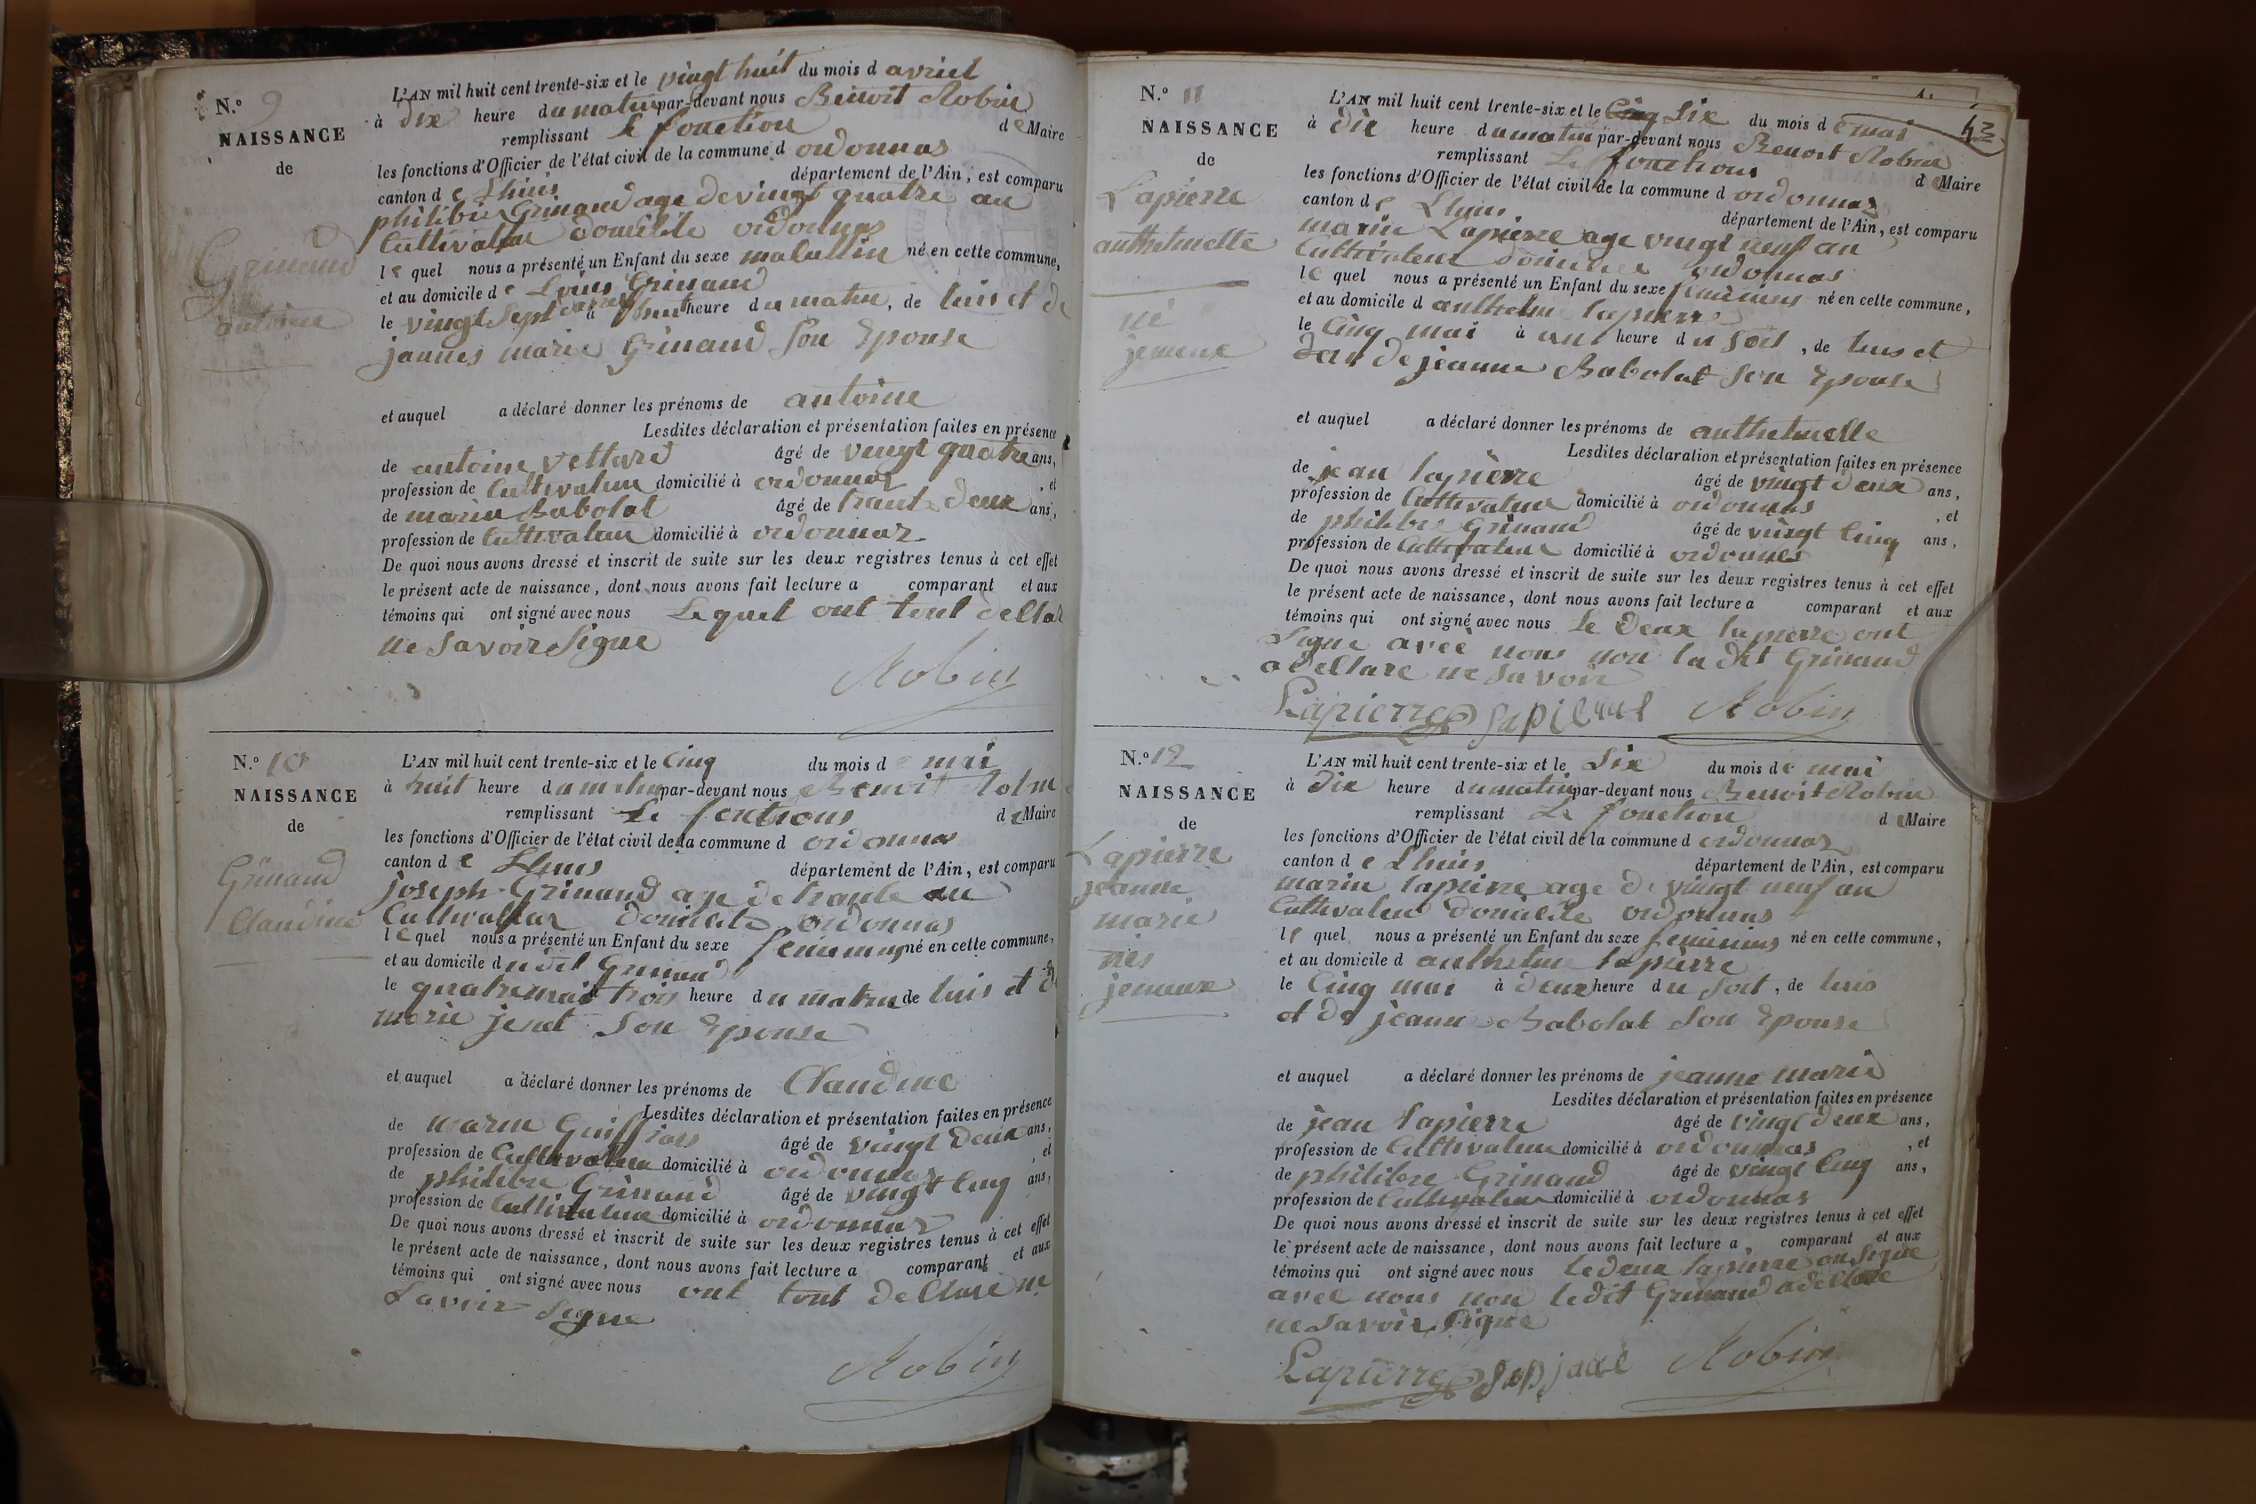 N.º 9
NAISSANCE
de
Grinand
antoine
L'AN mil huit cent trente-six et le vingt huit du mois d avriel
à dix heure du matin par-devant nous Benoit Robin
remplissant le fonction de Maire
les fonctions d'Officier de l'état civil de la commune d ordonnas
canton de Lhuis département de l'Ain, est comparu
philibre Grinand age de vingt quatre an
Cultivateur domicile ordonnas
le quel nous a présenté un Enfant du sexe né en cette commune,
et au domicile de Louis Grinand
le vingt Sept avriel à huit heure du matin, de luis et de
jannes marie Grinand Son Epouse
et auquel a déclaré donner les prénoms de antoine
Lesdites déclaration et présentation faites en présence
de antoine vettard âgé de vingt quatre ans,
profession de Cultivateur domicilié à ordonnas, et
de marin Babolat âgé de trante deux ans,
profession de Cultivateur domicilié à ordonnas
De quoi nous avons dressé et inscrit de suite sur les deux registres tenus à cet effet
le présent acte de naissance, dont nous avons fait lecture a comparant et aux
témoins qui ont signé avec nous Lequel ont tout dellaré
ne Savoir Signe
Robin
N.º 10
NAISSANCE
de
Grinand
Claudine
L'AN mil huit cent trente-six et le Cinq du mois de mai
à huit heure du matin par-devant nous Benoit Robin
remplissant Le fonctions de Maire
les fonctions d'Officier de l'état civil de la commune d ordonnas
canton de Lhuis département de l'Ain, est comparu
joseph Grinand age de trante an
Cultivateur domicile ordonnas
le quel nous a présenté un Enfant du sexe né en cette commune,
et au domicile du dit Grinand
le quatre mai à trois heure du matin de luis et de
marie jenet Son Epouse
et auquel a déclaré donner les prénoms de Claudine
Lesdites déclaration et présentation faites en présence
de marin âgé de vingt deux ans,
profession de Cultivateur domicilié à ordonnas, et
de philibre Grinand âgé de vingt Cinq ans,
profession de Cultivateur domicilié à ordonnas
De quoi nous avons dressé et inscrit de suite sur les deux registres tenus à cet effet
le présent acte de naissance, dont nous avons fait lecture a comparant et aux
témoins qui ont signé avec nous ont tout dellare ne
Savoir Signe
Robin
43
N.º 11
NAISSANCE
de
Lapierre
anthelmette
né
jemeux
L'AN mil huit cent trente-six et le Cinq Six du mois de mai
à dix heure du matin par-devant nous Benoit Robin
remplissant Le fonctions de Maire
les fonctions d'Officier de l'état civil de la commune d ordonnas
canton de Lhuis département de l'Ain, est comparu
marin Lapierre age vingt neuf an
Cultivateur domicilie ordonnas
le quel nous a présenté un Enfant du sexe feminins né en cette commune,
et au domicile d anthelme lapierre
le Cinq mai à un heure du Soit, de luis et
de jeanne Babolat Son Epouse
et auquel a déclaré donner les prénoms de anthelmelle
Lesdites déclaration et présentation faites en présence
de jean lapierre âgé de vingt deux ans,
profession de Cultivateur domicilié à ordonnas, et
de philibre Grinand âgé de vingt Cinq ans,
profession de Cultivateur domicilié à ordonnas
De quoi nous avons dressé et inscrit de suite sur les deux registres tenus à cet effet
le présent acte de naissance, dont nous avons fait lecture a comparant et aux
témoins qui ont signé avec nous Le deux lapierre ont
Signe avec nous non la dit Grinand
a dellare ne Savoir
Lapierre Robin
N.º 12
NAISSANCE
de
Lapierre
jeanne
marie
nés
jemeux
L'AN mil huit cent trente-six et le Six du mois de mai
à Dix heure du matin par-devant nous Benoit Robin
remplissant Le fonction de Maire
les fonctions d'Officier de l'état civil de la commune d ordonnas
canton de Lhuis département de l'Ain, est comparu
marin lapierre age de vingt neuf an
Cultivateur domicile ordonnas
le quel nous a présenté un Enfant du sexe feminins né en cette commune,
et au domicile d anthelme lapierre
le Cinq mai à deux heure du Soit, de luis
et de jeanne Babolat Son Epouse
et auquel a déclaré donner les prénoms de jeanne marie
Lesdites déclaration et présentation faites en présence
de jean Lapierre âgé de vingt deux ans,
profession de Cultivateur domicilié à ordonnas, et
de philibre Grinand âgé de vingt Cinq ans,
profession de Cultivateur domicilié à ordonnas
De quoi nous avons dressé et inscrit de suite sur les deux registres tenus à cet effet
le présent acte de naissance, dont nous avons fait lecture a comparant et aux
témoins qui ont signé avec nous Le deux lapierre on Signe
avec nous non ledit Grinand a dellare
ne Savoir Signe
Lapierre Robin